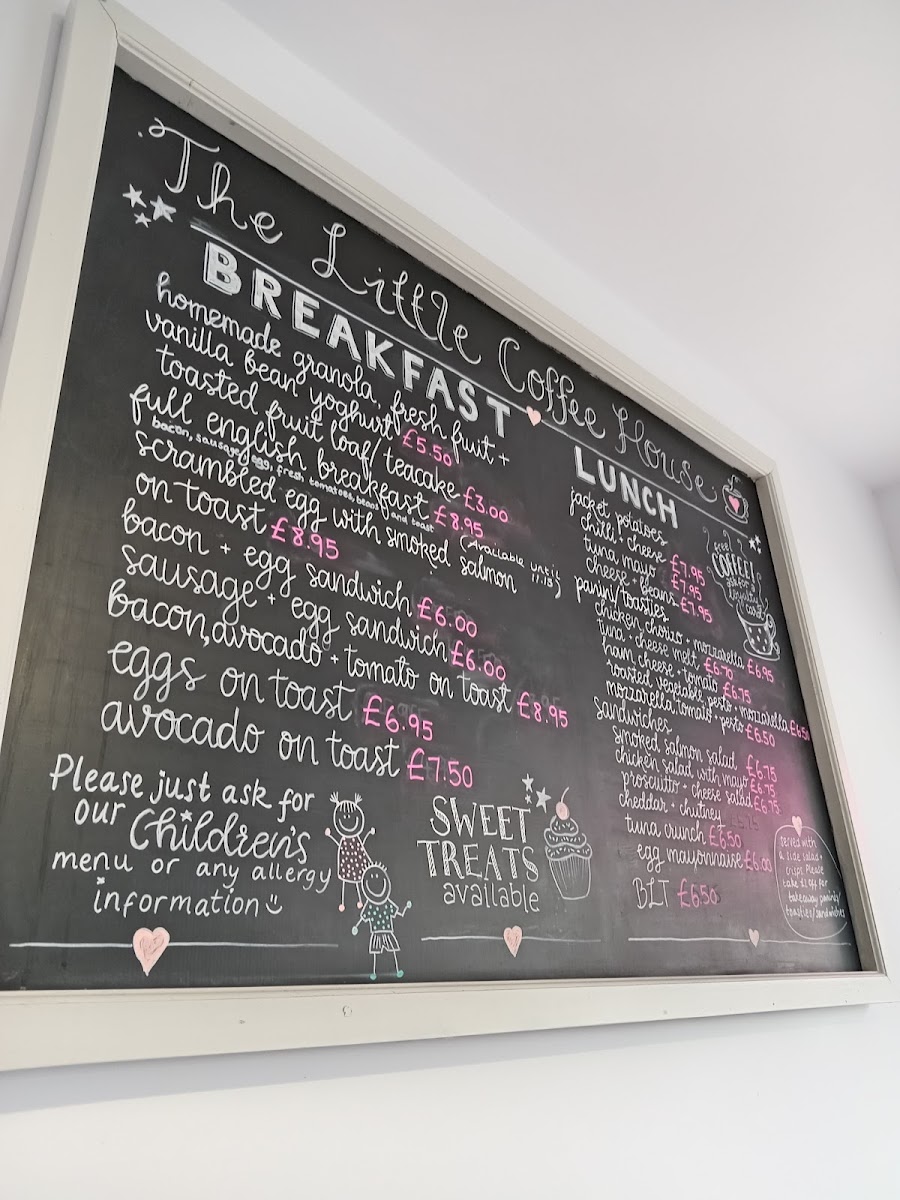 The Little Coffee House
BREAKFAST
homemade granola, fresh fruit +
vanilla bean yoghurt £5.50
toasted fruit loaf/ teacake £3.00
full english breakfast £8.95
bacon, sausage, egg, fresh tomatoes, beans and toast
(Available until 11:15)
scrambled egg with smoked salmon
on toast £8.95
bacon + egg sandwich £6.00
sausage + egg sandwich £6.00
bacon, avocado + tomato on toast £8.95
eggs on toast £6.95
avocado on toast £7.50
Please just ask for
our Children's
menu or any allergy
information
SWEET
TREATS
available
LUNCH
jacket potatoes
chilli + cheese £7.95
tuna mayo £7.95
cheese + beans £7.95
panini/toasties
chicken, chorizo + mozzarella £6.95
tuna + cheese melt £6.70
ham, cheese + tomato £6.75
toasted vegetables, pesto + mozzarella £6.50
mozzarella, tomato + pesto £6.50
sandwiches
smoked salmon salad £6.75
chicken salad with mayo £6.75
prosciutto + cheese salad £6.75
cheddar + chutney
tuna crunch £6.50
egg mayonnaise £6.00
BLT £6.50
free
COFFEE!
ask for a
loyalty
card
served with
a side salad +
crisps. Please
take £1 off for
takeaway panini/
toasties/sandwiches